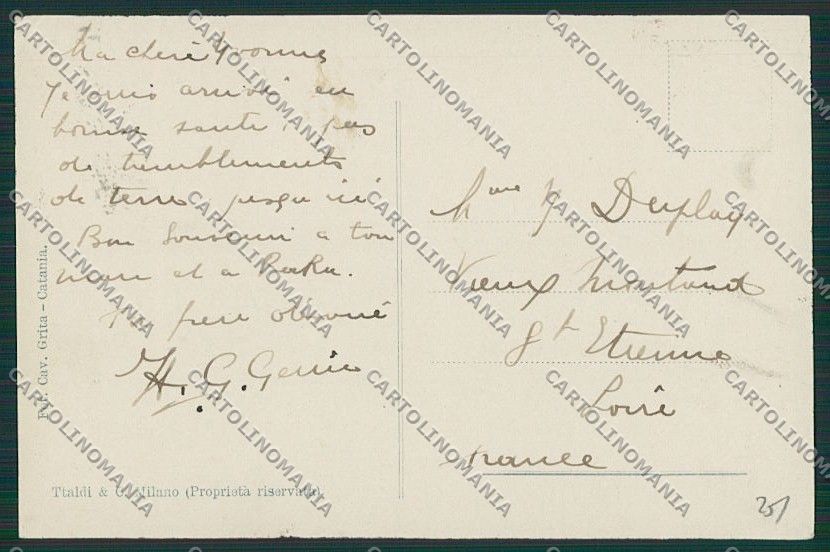 Ma chère Yvonne
Je suis arrivé en
bonne santé, pas
de tremblements
de terre jusqu'ici
Bon Souvenir a ton
mari et a
Ton frère dévoué
H. G.
Mme Y Duplay
Vieux
St Etienne
Loire
France
Fot. Cav. Grita - Catania.
Ttaldi & C. Milano (Proprietà riservata)
25/
CARTOLINOMANIA